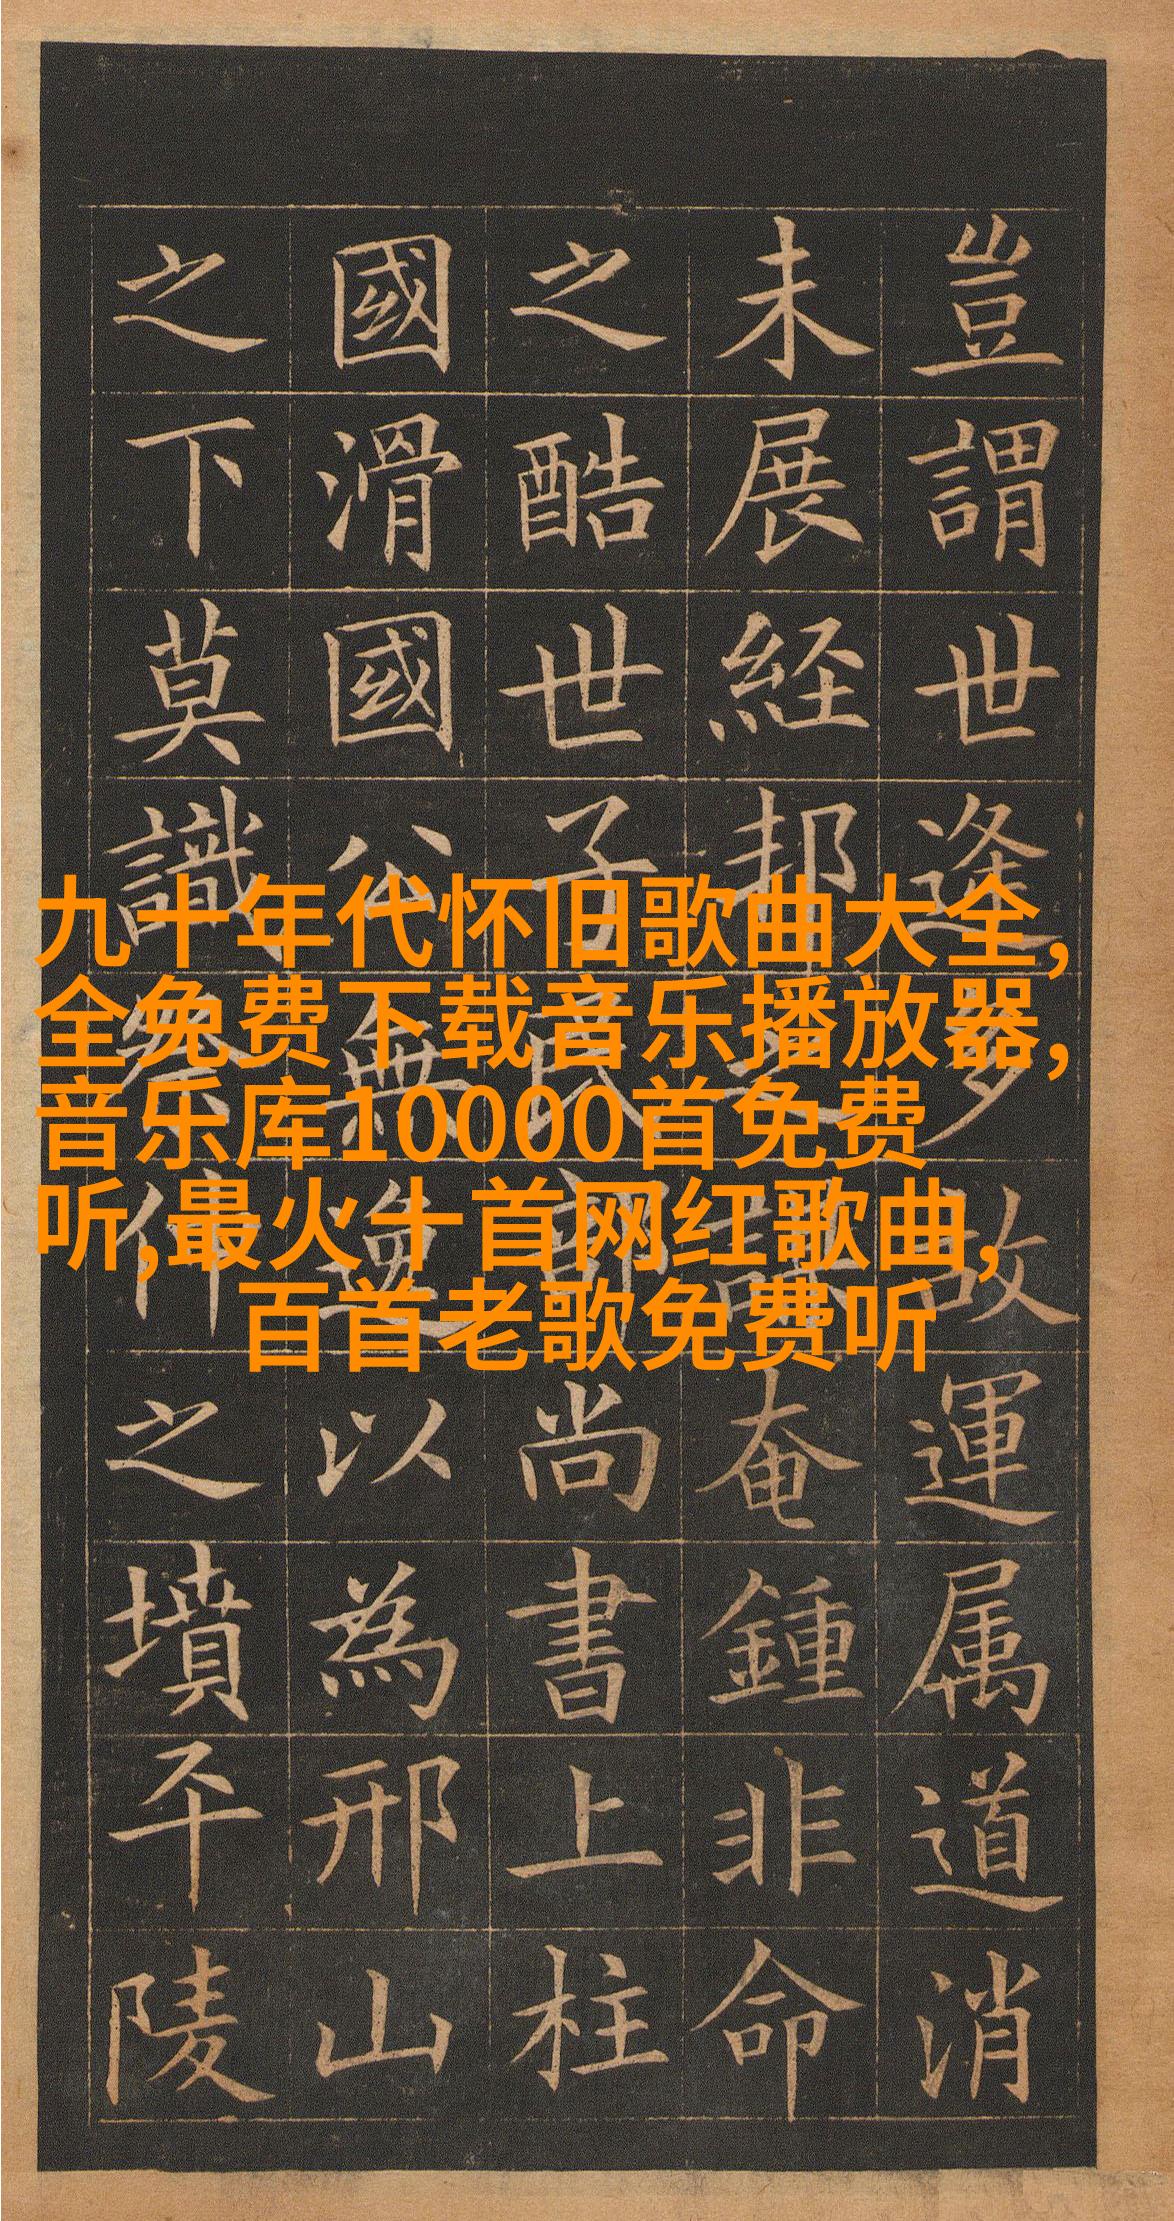 豈謂世逢多故運属道消
未展経邦之謀奄鍾非命
之酷世子民部尚書上柱
國滑國公無逸以為邢山
之下莫識祭仲之墳平陵
九十年代怀旧歌曲大全,
全免费下载音乐播放器,
音乐库10000首免费
听,最火十首网红歌曲,
百首老歌免费听